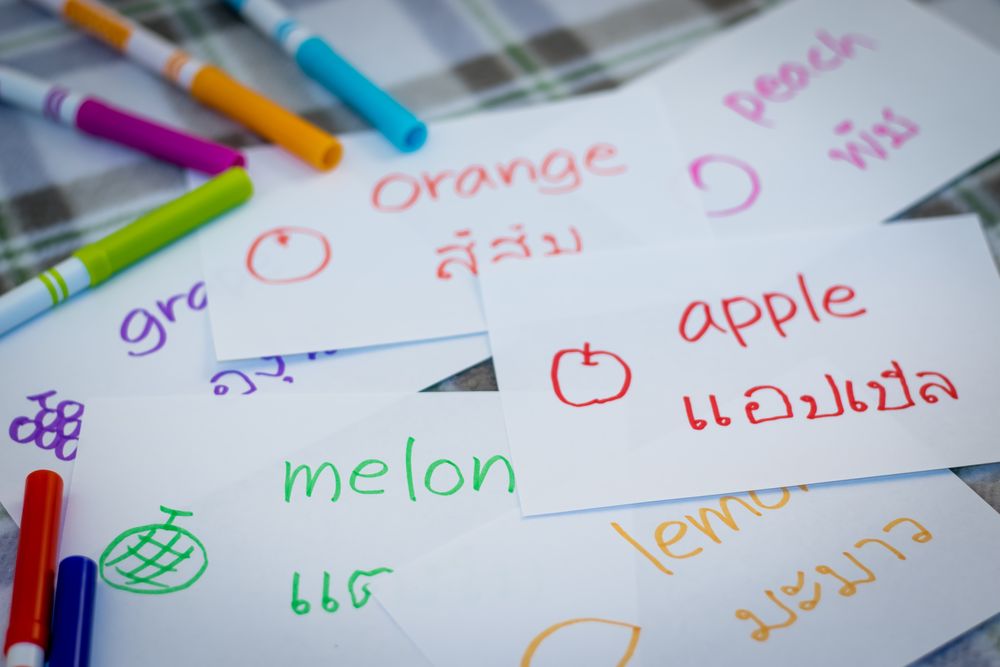 peach
พีช
orange
สีส้ม
apple
แอปเปิล
gra
องุ่น
melon
แต
lemon
มะนาว